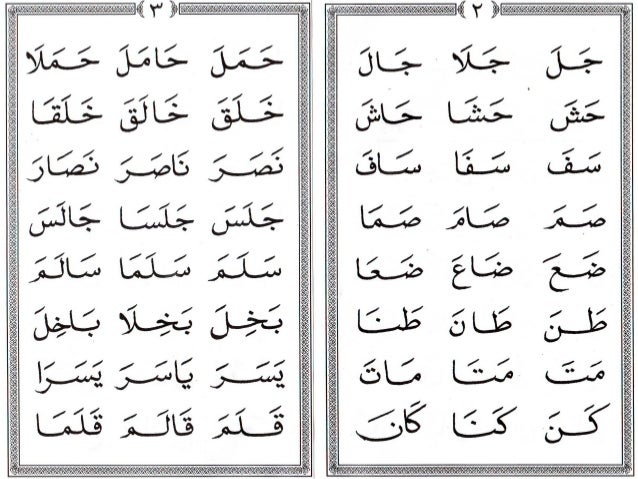 ٢
جَلَ جَلَا جَالَ
حَشَ حَشَا حَاشَ
سَفَ سَفَا سَافَ
صَمَ صَامَ صَمَا
ضَعَ ضَاعَ ضَعَا
طَنَ طَانَ طَنَا
مَتَ مَتَا مَاتَ
كَنَ كَنَا كَانَ
٣
حَمَلَ حَامَلَ حَمَلَا
خَلَقَ خَالَقَ خَلَقَا
نَصَرَ نَاصَرَ نَصَارَ
جَلَسَ جَلَسَا جَالَسَ
سَلَمَ سَلَمَا سَالَمَ
بَخِلَ بَخِلَا بَاخِلَ
يَسَرَ يَاسَرَ يَسَرَا
قَلَمَ قَالَمَ قَلَمَا